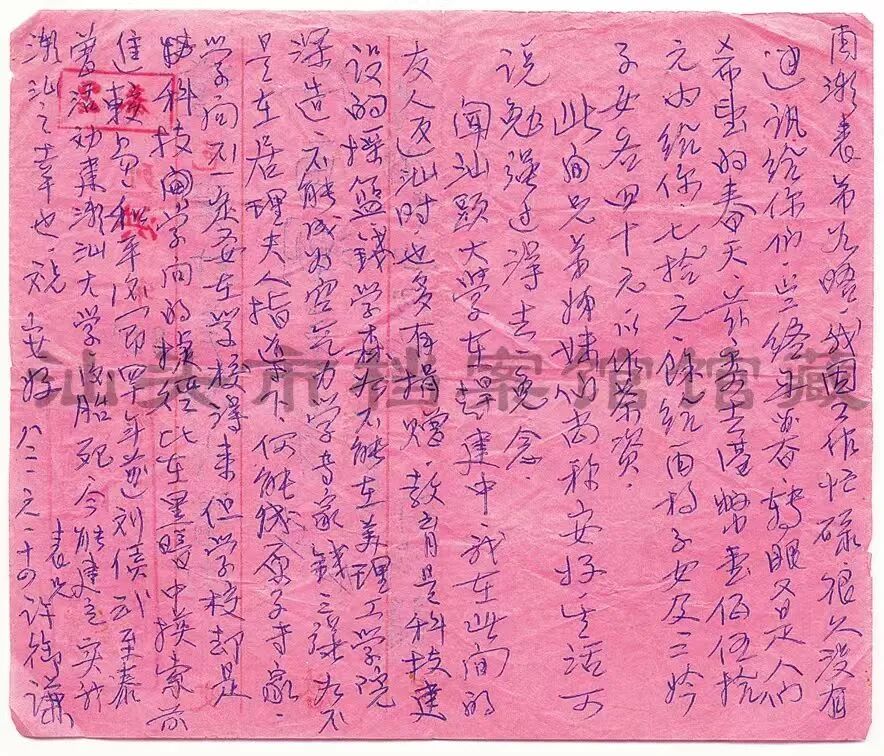 南潮表弟如晤：我因工作忙碌很久没有
通讯给你们，岁终年暮转眼又是人们
希望的春天，兹寄去港币壹佰伍拾
元内给你七拾元，余给两子女及三妗
子女各四十元以作茶资。
此间兄弟姊妹们尚称安好，生活可
说勉强过得去，免念。
闻汕头大学在捐建中，我在此间的
友人返汕时也多有捐赠，教育是科技建
设的摇篮，钱学森如不能在美理工学院
深造，不能成为空气力学专家，钱三强如不
是在居理夫人指导下，何能成原子专家。
学问不一定要在学校得来，但学校却是
科技学问的，比在黑暗中摸索前
进较易。和平后第四年刘侯武至泰
曾活动建潮汕大学胎死，今能建立实为
潮汕之幸也。祝
安好
表兄
许御谦
八二·元·十四
汕头市档案馆馆藏